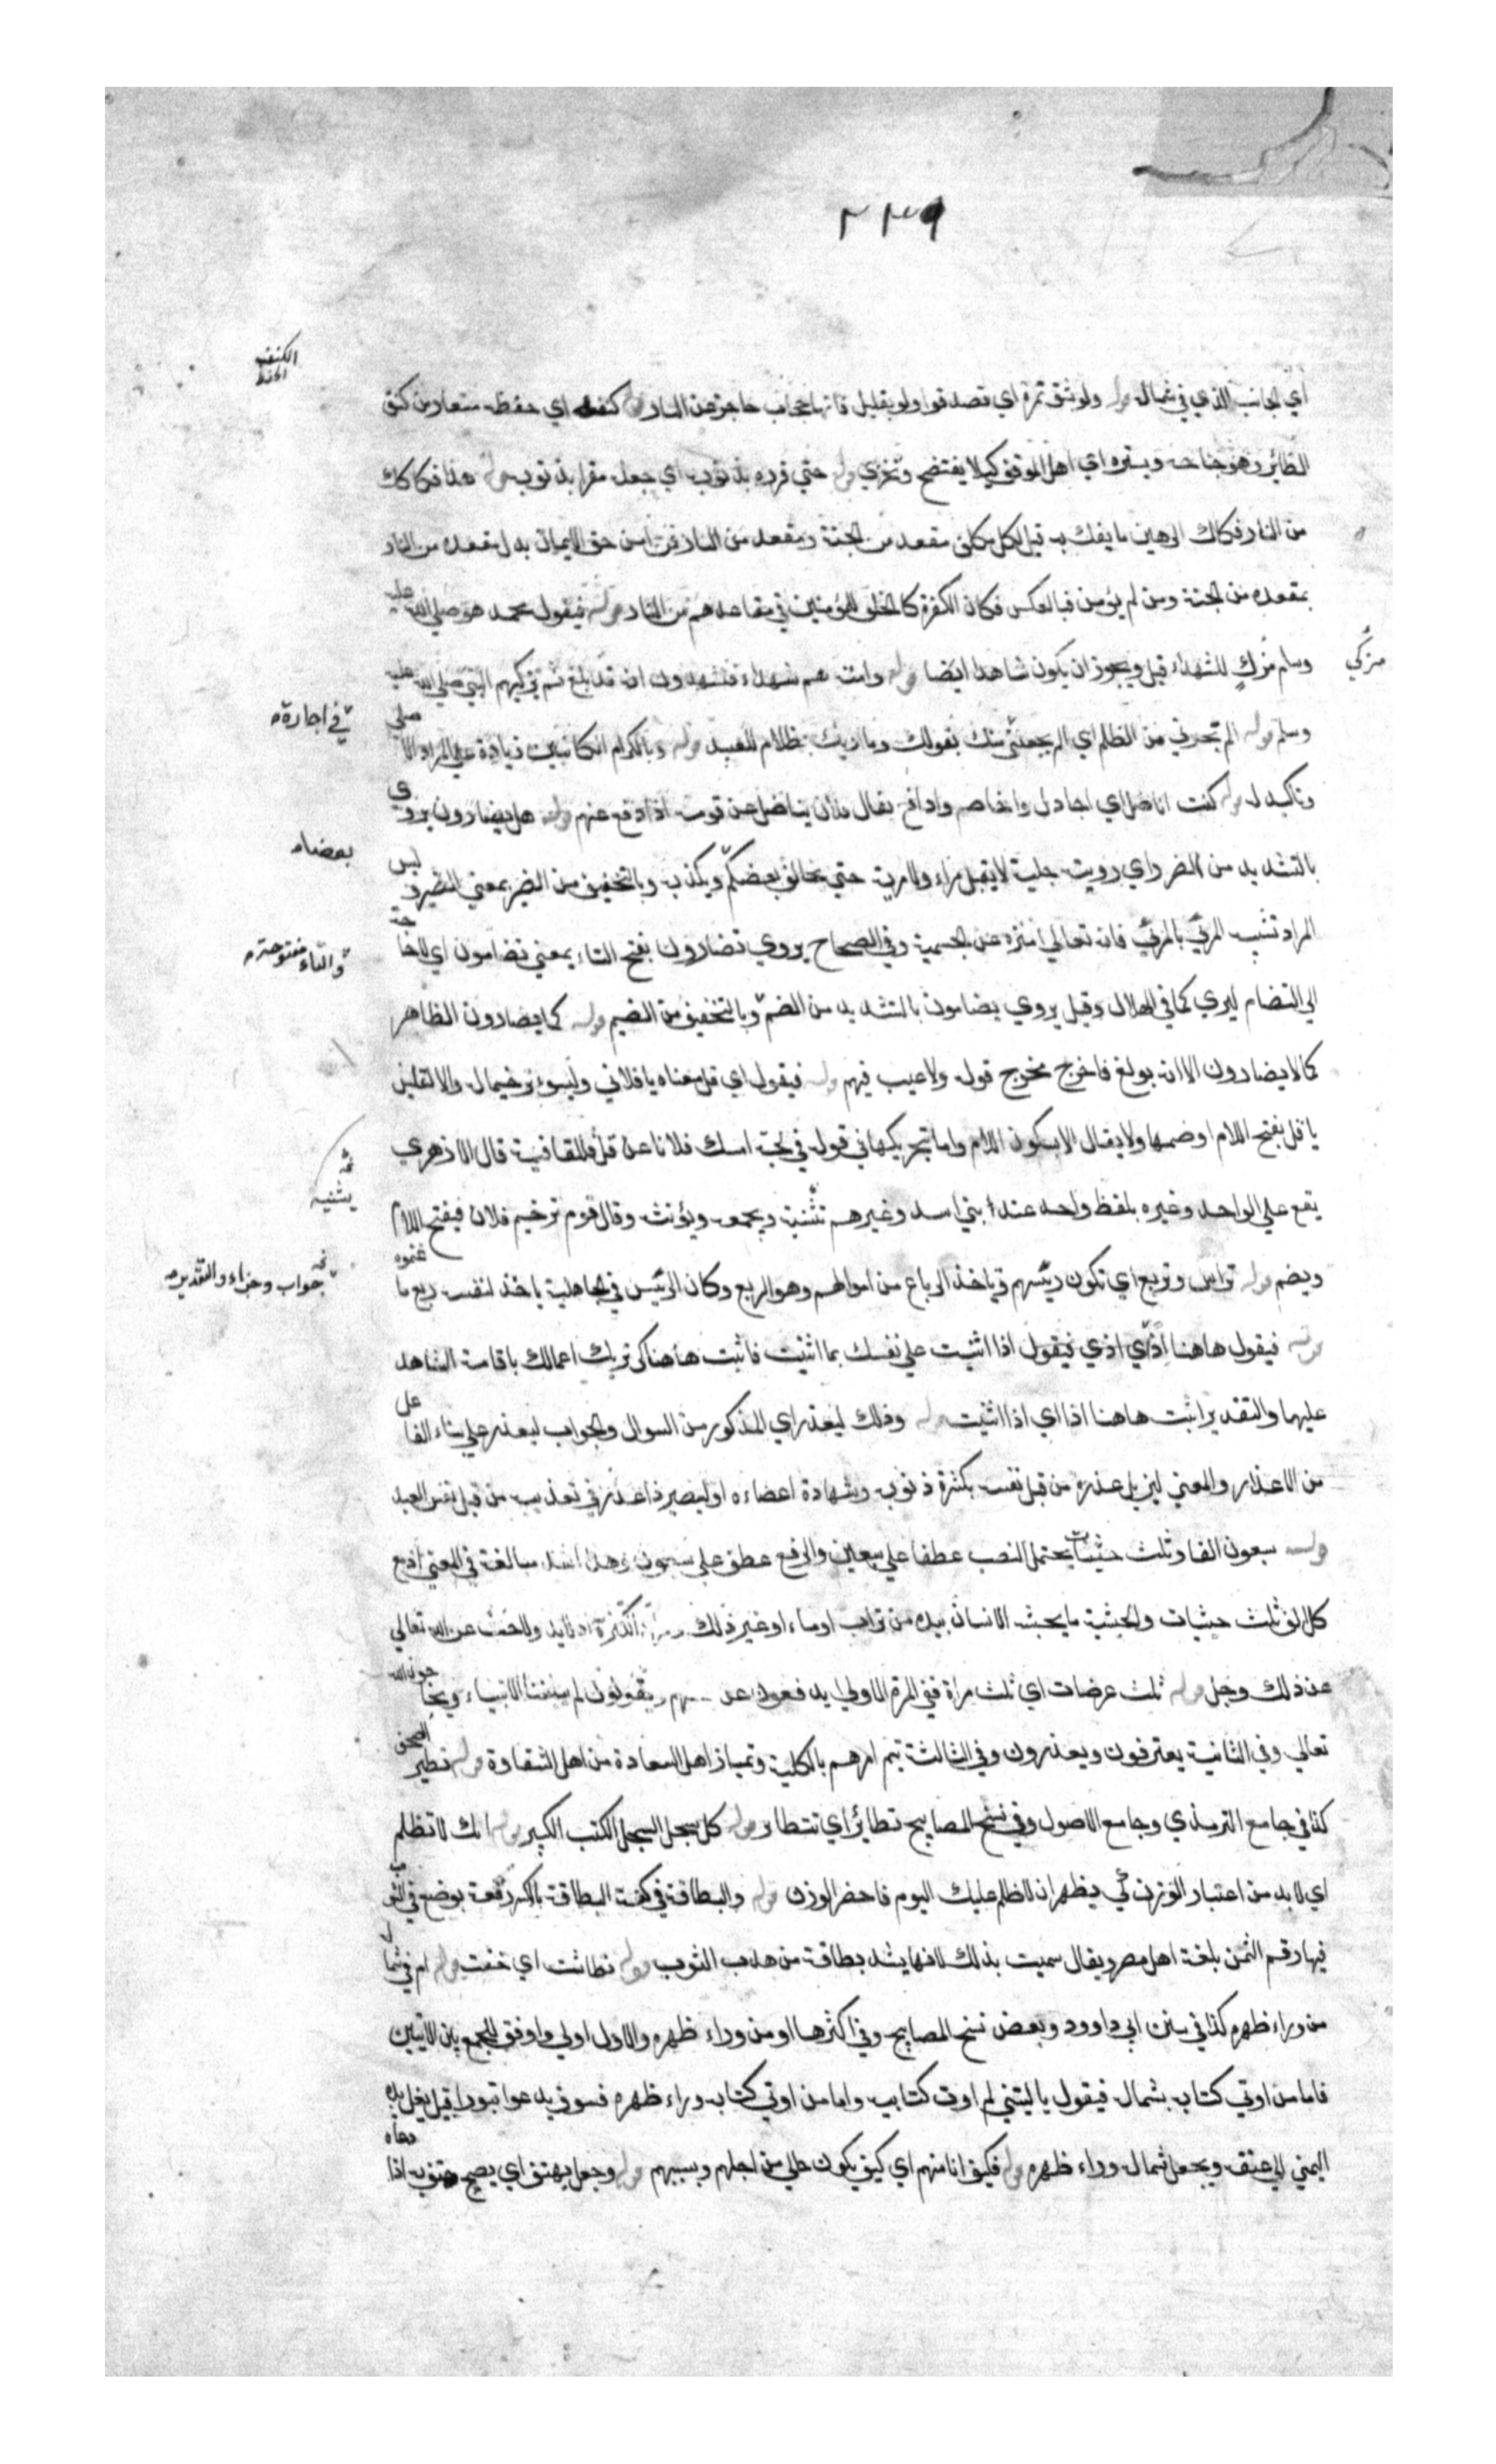 ٢٣٩
الكنف
اي الجانب الذي في شماله قوله ولو بشق تمرة اي تصدقوا ولو بقليل فانها حجاب حاجز عن النار كنفه اي حفظه مستعار من كنف
الطائر وهو جناحه ويستره اي اهل الموقف كيلا يفتضح وتخزي قوله حتي قرره بذنوبه اي جعله مقرا بذنوبه قوله هذا فكاكك
من النار فكاك الرهين ما يفك به قيل لكل مكلف مقعد من الجنة ومقعد من النار فمن امن حق الايمان بدل مقعده من النار
بمقعده من الجنة ومن لم يؤمن فبالعكس فكان الكفرة كالخلف للمؤمنين في مقاعدهم من النار قوله فيقول محمد هو صلي الله عليه
مزكي
وسلم مزك للشهداء قيل ويجوز ان يكون شاهدا ايضا قوله وامته هم شهداء فتشهدون انه قد بلغ ثم يزكيهم النبي صلي الله عليه
في اجارة
وسلم قوله الم تجرني من الظلم اي الم يجعلني منك بقولك وما ربك بظلام للعبيد قوله وبالكرام الكاتبين زيادة علي المراد الاصلي
وتاكيد له قوله كنت اناضل اي اجادل واخاصم وادافع يقال فلان يناضل عن قومه اذا دفع عنهم قوله هل يضارون يروي
بعضا
بالتشديد من الضر واي رويت جلية لا يقبل مراء ولا مرية حتي يخالف بعضكم ويكذب وبالتخفيف من الضير بمعني الضر وليس
والتاء مفتوحة
المراد تشبيه المرئي بالمرئي فانه تعالي منزه عن الجسمية وفي الصحاح يروي تضارون بفتح التاء بمعني تضامون اي لا حاجة
الي التضام ليري كما في الهلال وقيل يروي يضامون بالتشديد من الضم وبالتخفيف من الضيم قوله كما يضارون الظاهر
كما لا يضارون الا انه بولغ فاخرج مخرج قوله ولا عيب فيهم قوله فيقول اي فل معناه يا فلان وليس ترخيما له والا لقيل
يا فل بفتح اللام او ضمها ولا يقال الا بسكون اللام واما تحريكها في قوله في لجة امسك فلانا عن فل فللقافية قال الازهري
يثنيه
يقع علي الواحد وغيره بلفظ واحد عند بني اسد وغيرهم تثنية ويجمع ويؤنث وقال قوم ترخيم فلان فيفتح اللام
جواب وجزاء والتقدير
ويضم قوله تراس وتربع اي تكون رئيسهم وتاخذ الرباع من اموالهم وهو الربع وكان الرئيس في الجاهلية ياخذ لنفسه ربع ما غنموه
قوله فيقول هاهنا اذا اي اذي فيقول اذا اثنيت علي نفسك بما اثنيت فاثبت هاهنا كي نريك اعمالك باقامة الشاهد
عليها والتقدير اثبت هاهنا اذا اي اذا اثنيت قوله وذلك ليعذر اي المذكور من السوال والجواب ليعذر علي بناء الفاعل
من الاعذار والمعني ليزيل عذره من قبل نفسه بكثرة ذنوبه وشهادة اعضاءه او ليصير ذا عذر في تعذيبه من قبل نفس العبد
قوله سبعون الفا وثلث حثيات يحتمل النصب عطفا علي سبعين والرفع عطف علي سبعون وهذا اشد مبالغة في المعني اذ مع
كل الف ثلث حثيات والحثية ما يحثيه الانسان بيده من تراب او ماء او غير ذلك
عن ذلك وجل قوله ثلث عرضات اي ثلث مرات ففي المرة الاولي يدفعون عن ويقولون لم يبلغنا الانبياء ويحاجون الله
تعالي وفي الثانية يعترفون ويعذرون وفي الثالثة يتم امرهم بالكلية وتمياز اهل السعادة من اهل الشقاوة قوله تطير الصحف
كذا في جامع الترمذي وجامع الاصول وفي نسخ المصابيح تطاير اي تتطاير قوله كل سجل السجل الكتب الكبير قوله انك لا تظلم
اي لا بد من اعتبار الوزن كي يظهر ان لا ظلم عليك اليوم فاحضر الوزن قوله والبطاقة في كفة البطاقة بالكسر رقعة يوضع في الثوب
فيها رقم الثمن بلغة اهل مصر ويقال سميت بذلك لانها يشد بطاقة من هدب الثوب قوله فطاشت اي خفت قوله ام في شماله
من وراء ظهره كذا في سنن ابي داوود وبعض نسخ المصابيح وفي اكثرها او من وراء ظهره والاول اولي واوفق للجمع بين الايتين
فاما من اوتي كتابه بشماله فيقول يا ليتني لم اوت كتابيه واما من اوتي كتابه وراء ظهره فسوف يدعوا ثبورا قيل يغل يده
اليمني الي عنقه ويجعل شماله وراء ظهره قوله فكيف انا منهم اي كيف يكون حالي من اجلهم وبسببهم قوله وجعل يهتف اي يصيح هتف به اذا دعاه